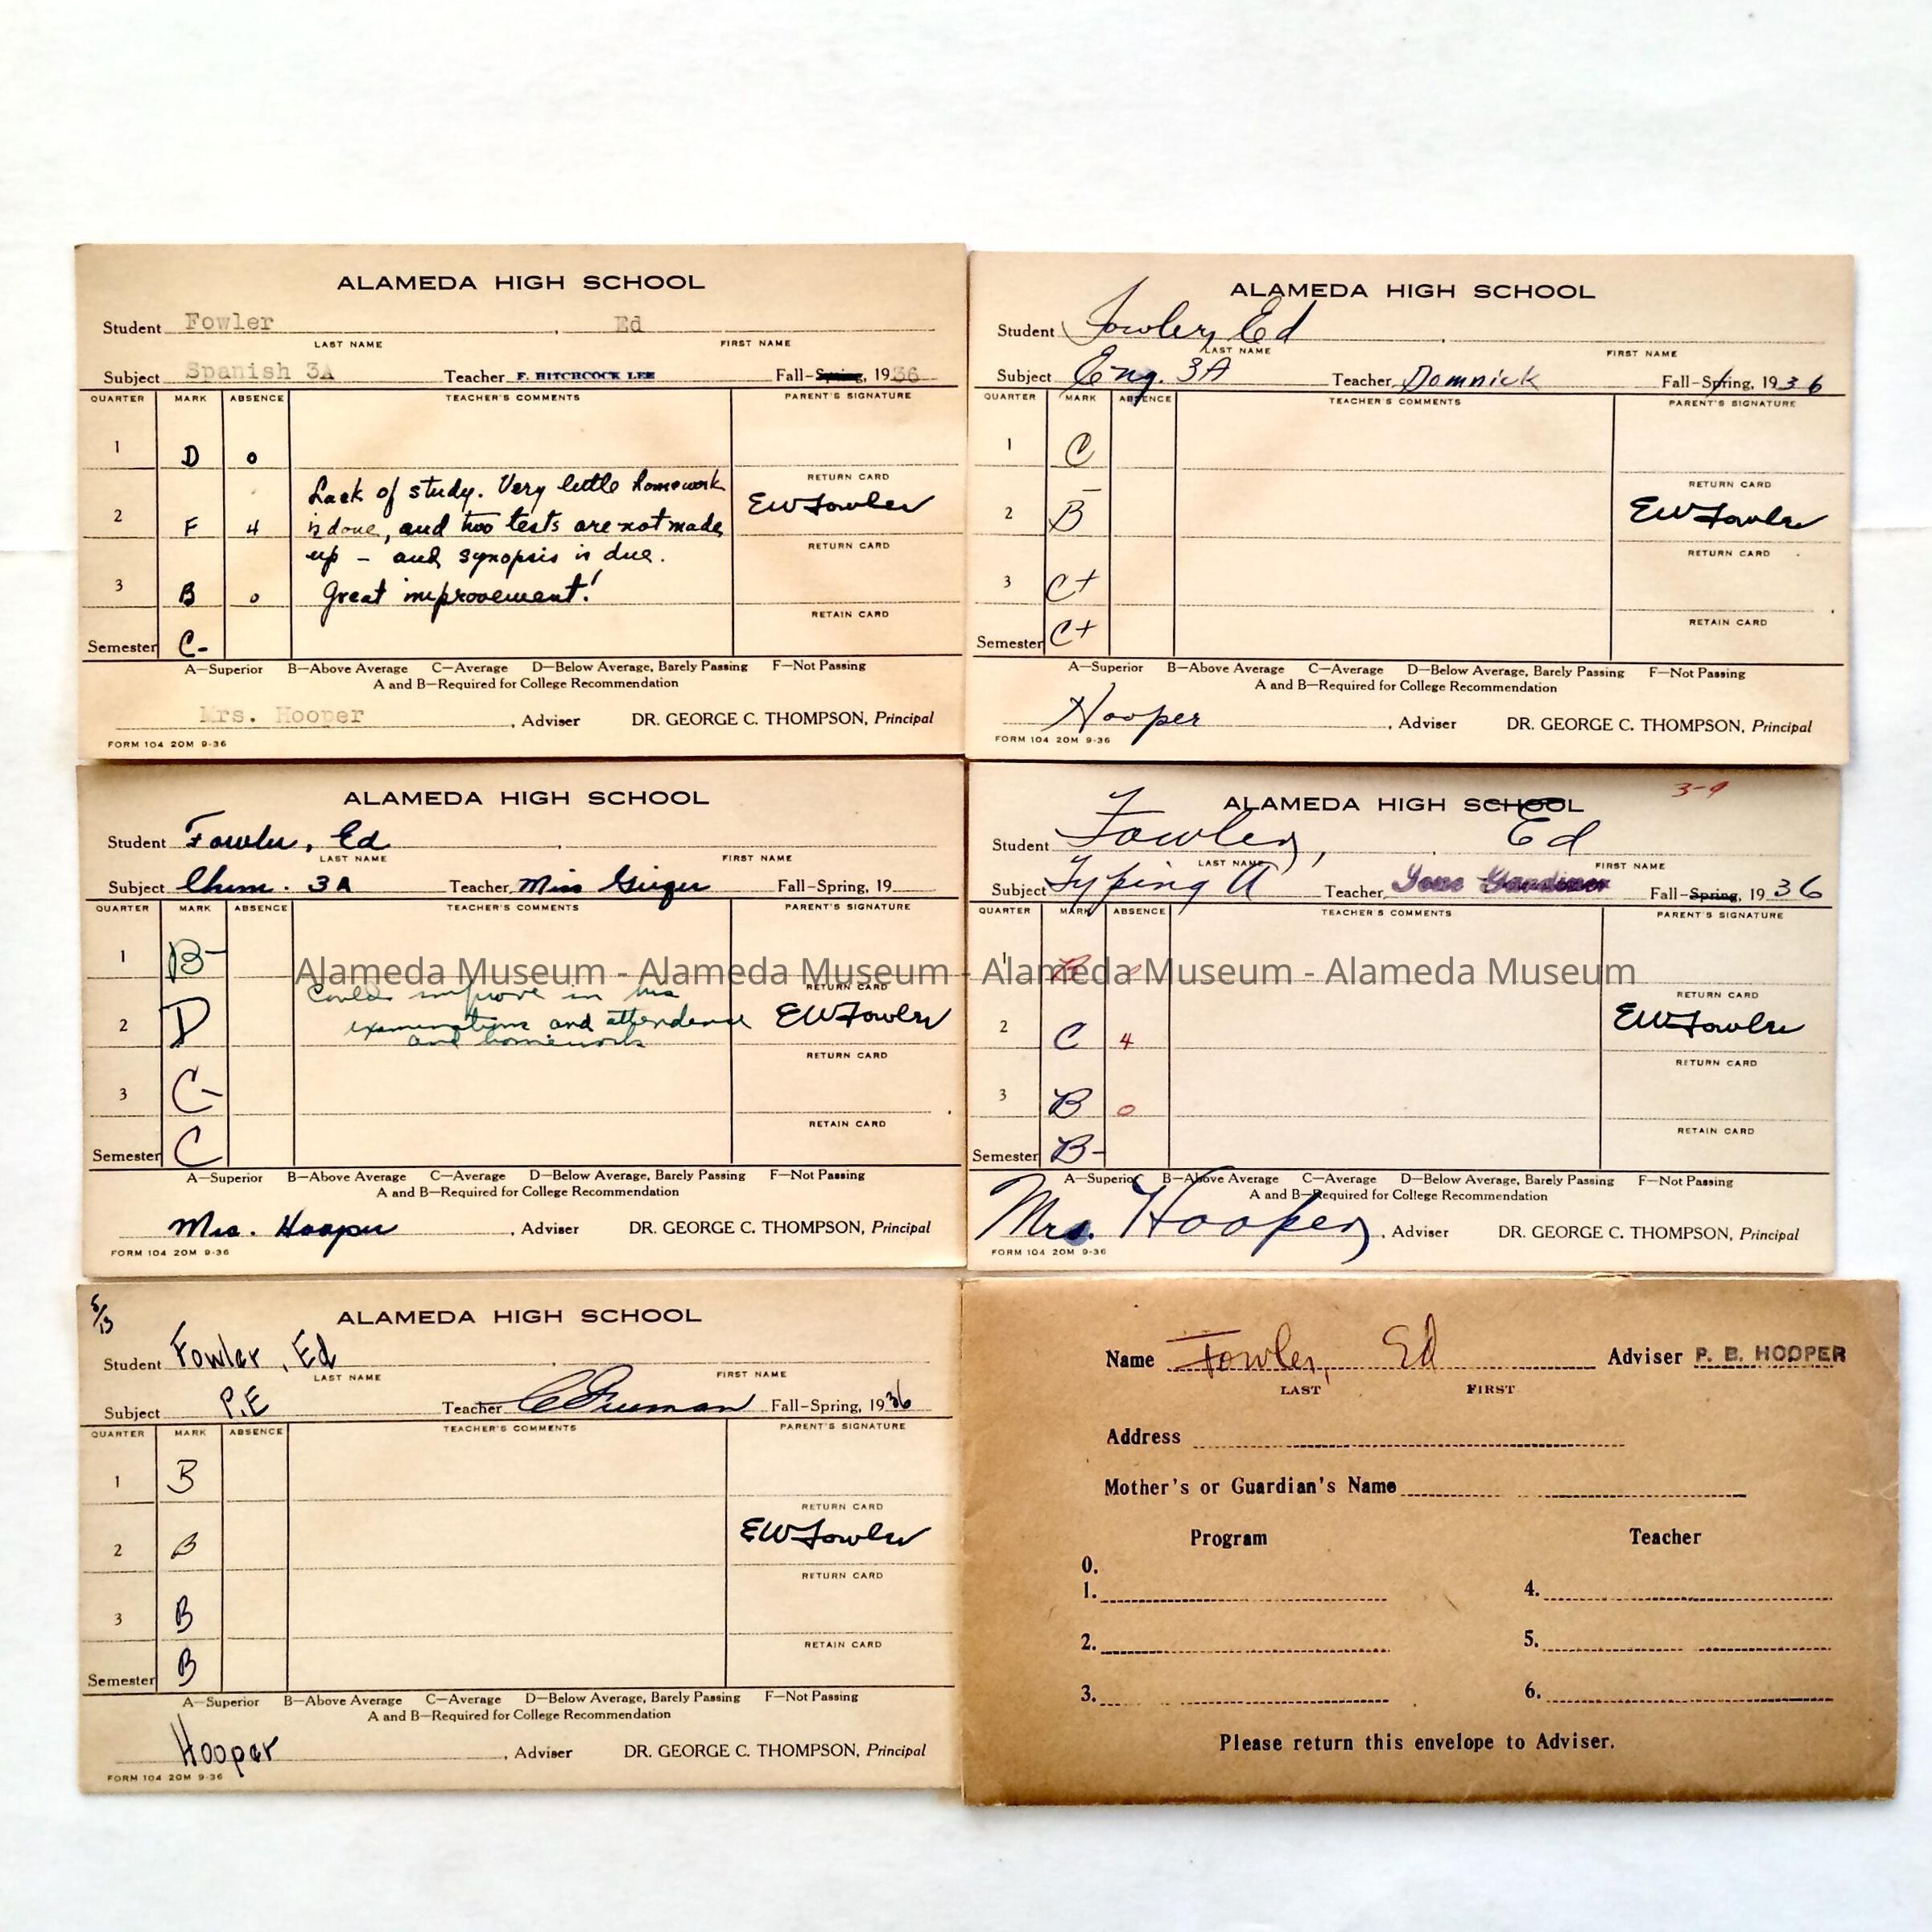 ALAMEDA HIGH SCHOOL
Student Fowler , Ed
LAST NAME FIRST NAME
Subject Spanish 3A Teacher F. HITCHCOCK LEE Fall-Spring, 1936
QUARTER MARK ABSENCE TEACHER'S COMMENTS PARENT'S SIGNATURE
1 D 0
RETURN CARD
Lack of study. Very little homework
2 F 4 is done, and two tests are not made EW Fowler
up - and synopsis is due.
RETURN CARD
3 B 0 Great improvement!
RETAIN CARD
Semester C-
A—Superior B—Above Average C—Average D—Below Average, Barely Passing F—Not Passing
A and B—Required for College Recommendation
Mrs. Hooper , Adviser DR. GEORGE C. THOMPSON, Principal
FORM 104 20M 9-36
ALAMEDA HIGH SCHOOL
Student Fowler, Ed
LAST NAME FIRST NAME
Subject Eng. 3A Teacher Domnick Fall-Spring, 1936
QUARTER MARK ABSENCE TEACHER'S COMMENTS PARENT'S SIGNATURE
1 C
RETURN CARD
2 B- EW Fowler
RETURN CARD
3 C+
RETAIN CARD
Semester C+
A—Superior B—Above Average C—Average D—Below Average, Barely Passing F—Not Passing
A and B—Required for College Recommendation
Hooper , Adviser DR. GEORGE C. THOMPSON, Principal
FORM 104 20M 9-36
ALAMEDA HIGH SCHOOL
Student Fowler, Ed
LAST NAME FIRST NAME
Subject Chem. 3A Teacher Miss Fall-Spring, 19
QUARTER MARK ABSENCE TEACHER'S COMMENTS PARENT'S SIGNATURE
1 B-
Alameda Museum - Alameda Museum - Alameda Museum - Alameda Museum
RETURN CARD
Could improve in his
2 D examinations and attendance EW Fowler
and homework
RETURN CARD
3 C-
RETAIN CARD
Semester C
A—Superior B—Above Average C—Average D—Below Average, Barely Passing F—Not Passing
A and B—Required for College Recommendation
Mrs. Hooper , Adviser DR. GEORGE C. THOMPSON, Principal
FORM 104 20M 9-36
3-9
ALAMEDA HIGH SCHOOL
Student Fowler, Ed
LAST NAME FIRST NAME
Subject Typing A Teacher Gardiner Fall-Spring, 1936
QUARTER MARK ABSENCE TEACHER'S COMMENTS PARENT'S SIGNATURE
1 B
RETURN CARD
2 C 4 EW Fowler
RETURN CARD
3 B 0
RETAIN CARD
Semester B-
A—Superior B—Above Average C—Average D—Below Average, Barely Passing F—Not Passing
A and B—Required for College Recommendation
Mrs. Hooper , Adviser DR. GEORGE C. THOMPSON, Principal
FORM 104 20M 9-36
ALAMEDA HIGH SCHOOL
Student Fowler, Ed
LAST NAME FIRST NAME
Subject P.E Teacher Fall-Spring, 1936
QUARTER MARK ABSENCE TEACHER'S COMMENTS PARENT'S SIGNATURE
1 B
RETURN CARD
2 B EW Fowler
RETURN CARD
3 B
RETAIN CARD
Semester B
A—Superior B—Above Average C—Average D—Below Average, Barely Passing F—Not Passing
A and B—Required for College Recommendation
Hooper , Adviser DR. GEORGE C. THOMPSON, Principal
FORM 104 20M 9-36
Name Fowler, Ed Adviser P. B. HOOPER
LAST FIRST
Address
Mother's or Guardian's Name
Program Teacher
0.
1. 4.
2. 5.
3. 6.
Please return this envelope to Adviser.